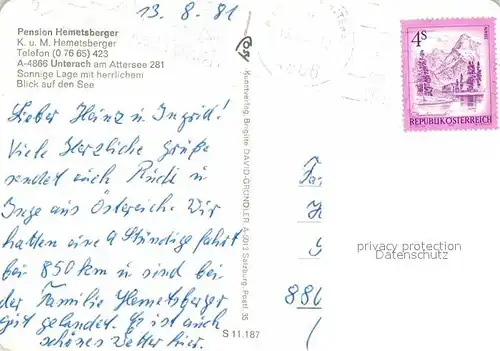 13. 8. 81
Pension Hemetsberger
K. u. M. Hemetsberger
Telefon (0 76 65) 423
A-4866 Unterach am Attersee 281
Sonnige Lage mit herrlichem
Blick auf den See
Lieber Heinz u Ingrid!
Viele Herzliche Grüße
sendet euch Rudi u
Inge aus Österreich. Wir
hatten eine 9 Stündige fahrt
bei 850 km u sind bei
der Familie Hemetsberger
gut gelandet. Es ist auch
schönes Wetter hier.
Kunstverlag Brigitte DAVID-GRÜNDLER A-5013 Salzburg, Postf. 35
S 11.187
4S
REPUBLIK ÖSTERREICH
privacy protection
Datenschutz